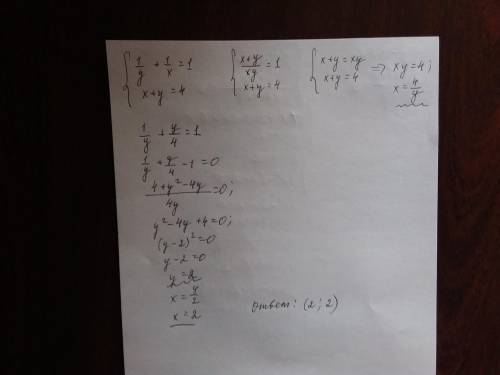 { 1/y + 1/x = 1   { (x+y)/xy = 1   { x+y = xy ⇒ xy = 4;
x+y = 4   x+y = 4   x+y = 4   x = 4/y
1/y + y/4 = 1
1/y + y/4 - 1 = 0
(4+y²-4y)/4y = 0;
y²-4y+4=0;
(y-2)²=0
y-2=0
y=2
x = 4/2
x = 2   Ответ: (2; 2)